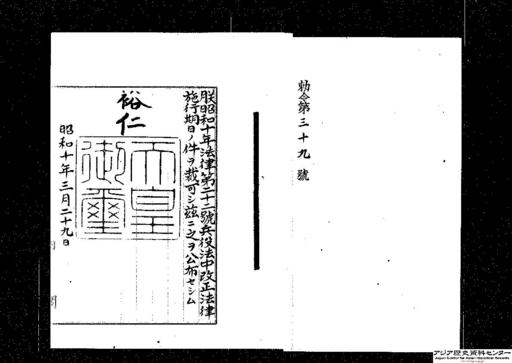 勅令第三十九號
朕昭和十年法律第二十二號兵役法中改正法律
施行期日ノ件ヲ裁可シ茲ニ之ヲ公布セシム
裕仁
天皇
御璽
昭和十年三月二十九日
アジア歴史資料センター
Japan Center for Asian Historical Records